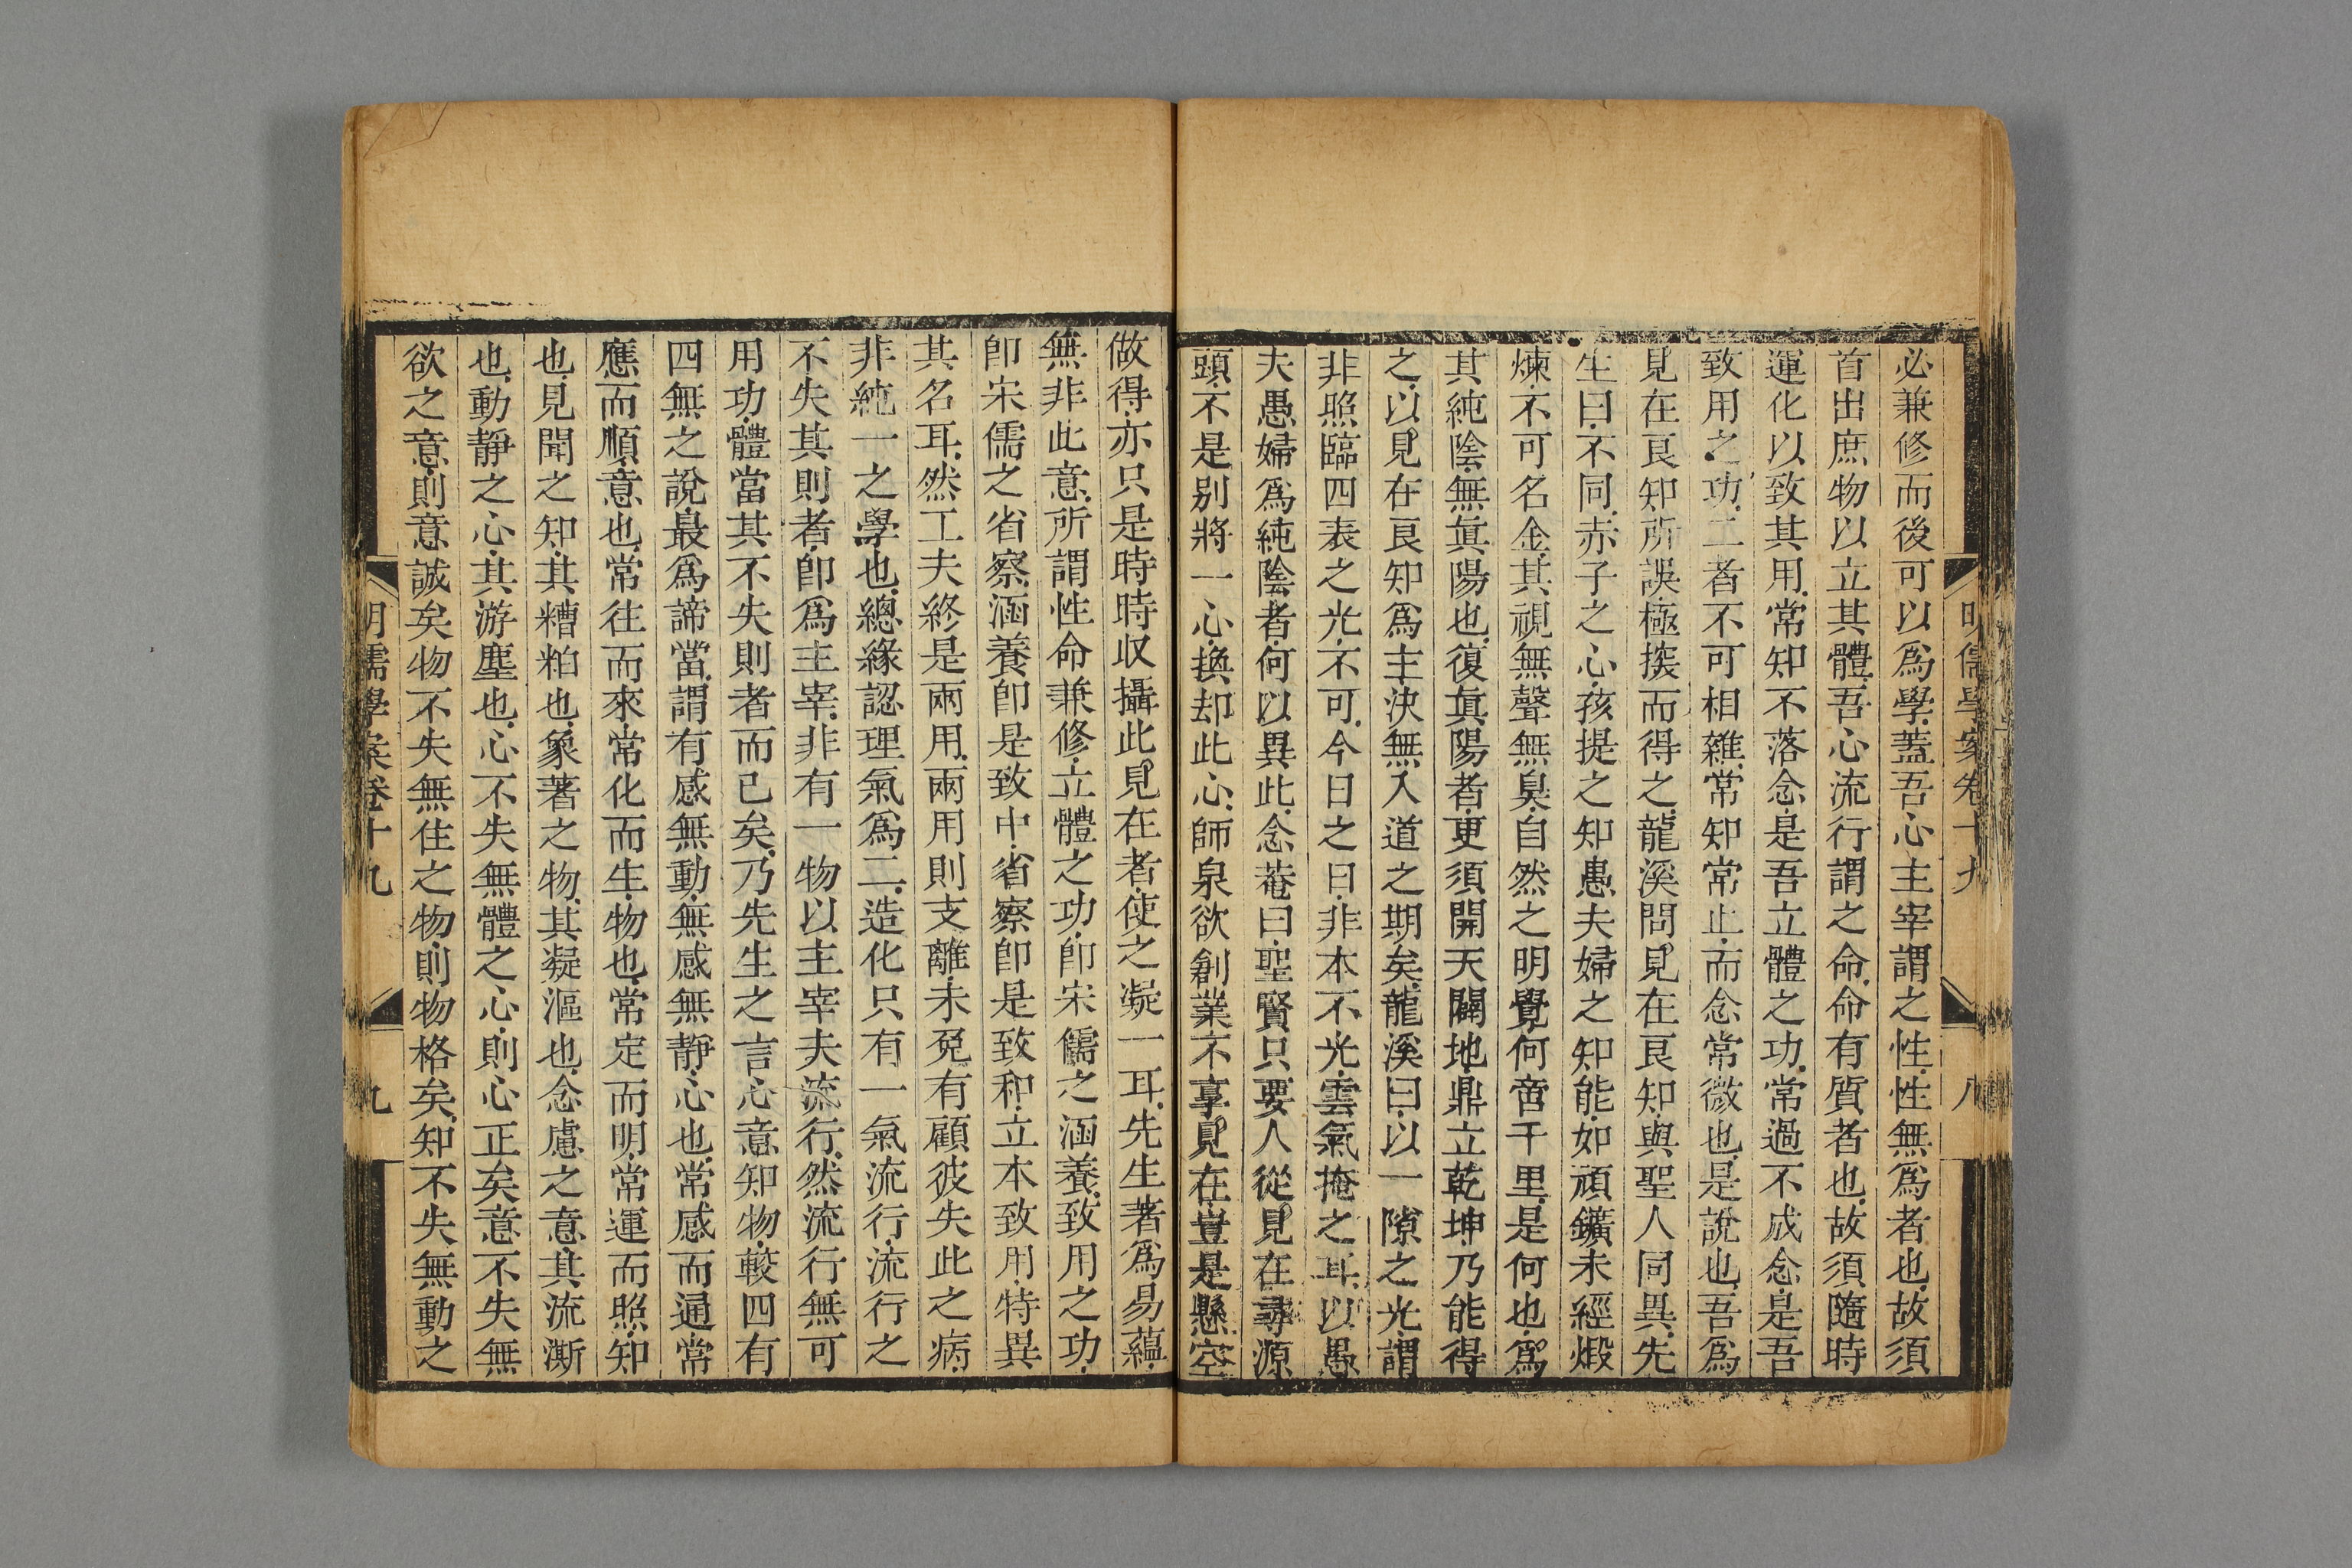 明儒學案卷十九
八
必兼修而後可以爲學.蓋吾心主宰謂之性.性無爲者也.故須
首出庶物以立其體.吾心流行謂之命.命有質者也.故須隨時
運化以致其用.常知不落念.是吾立體之功.常過不成念.是吾
致用之功.二者不可相雜.常知常止.而念常微也.是說也.吾爲
見在良知所誤.極探而得之.龍溪問見在良知.與聖人同異.先
生曰.不同.赤子之心.孩提之知.愚夫婦之知能.如頑鑛未經煅
煉.不可名金.其視無聲無臭.自然之明覺.何啻千里.是何也.爲
其純陰.無眞陽也.復眞陽者.更須開天闢地.鼎立乾坤.乃能得
之.以見在良知爲主.決無入道之期矣.龍溪曰.以一隙之光.謂
非照臨四表之光.不可.今日之日.非本不光.雲氣掩之耳.以愚
夫愚婦爲純陰者.何以異此.念菴曰.聖賢只要人從見在尋源
頭.不是別將一心.換却此心.師泉欲創業.不享見在.豈是懸空
做得.亦只是時時収攝此見在者.使之凝一耳.先生著爲易蘊.
無非此意.所謂性命兼修.立體之功.卽宋儒之涵養.致用之功.
卽宋儒之省察.涵養卽是致中.省察卽是致和.立本致用.特異
其名耳.然工夫終是兩用.兩用則支離.未免有顧彼失此之病.
非純一之學也.總緣認理氣爲二.造化只有一氣流行.流行之
不失其則者.卽爲主宰.非有一物以主宰夫流行.然流行無可
用功.體當其不失則者而已矣.乃先生之言心意知物.較四有
四無之說.最爲諦當.謂有感無動.無感無靜.心也.常感而通.常
應而順.意也.常往而來.常化而生.物也.常定而明.常運而照.知
也.見聞之知.其糟粕也.象著之物.其凝漚也.念慮之意.其流澌
也.動靜之心.其游塵也.心不失無體之心.則心正矣.意不失無
欲之意.則意誠矣.物不失無住之物.則物格矣.知不失無動之
明儒學案卷十九
九